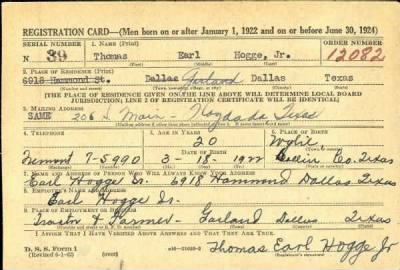 REGISTRATION CARD—(Men born on or after January 1, 1922 and on or before June 30, 1924)
SERIAL NUMBER 1. NAME (Print) ORDER NUMBER
N 39 Thomas Earl Hogge, Jr. 12082
2. PLACE OF RESIDENCE (Print)
6918 Hammond St. Dallas Garland Dallas Texas
(THE PLACE OF RESIDENCE GIVEN ON THE LINE ABOVE WILL DETERMINE LOCAL BOARD
JURISDICTION; LINE 2 OF REGISTRATION CERTIFICATE WILL BE IDENTICAL)
3. MAILING ADDRESS
SAME 206 S Main - Floydada Texas
4. TELEPHONE 5. AGE IN YEARS 6. PLACE OF BIRTH
20 Wylie
DATE OF BIRTH
7-5990 3-18-1922 Collin Co. Texas
7. NAME AND ADDRESS OF PERSON WHO WILL ALWAYS KNOW YOUR ADDRESS
Earl Hogge Sr. 6918 Hammond Dallas Texas
8. EMPLOYER'S NAME AND ADDRESS
Earl Hogge Sr.
9. PLACE OF EMPLOYMENT OR BUSINESS
Farmer - Garland Dallas Texas
I AFFIRM THAT I HAVE VERIFIED ABOVE ANSWERS AND THAT THEY ARE TRUE.
D. S. S. Form 1
Thomas Earl Hogge Jr